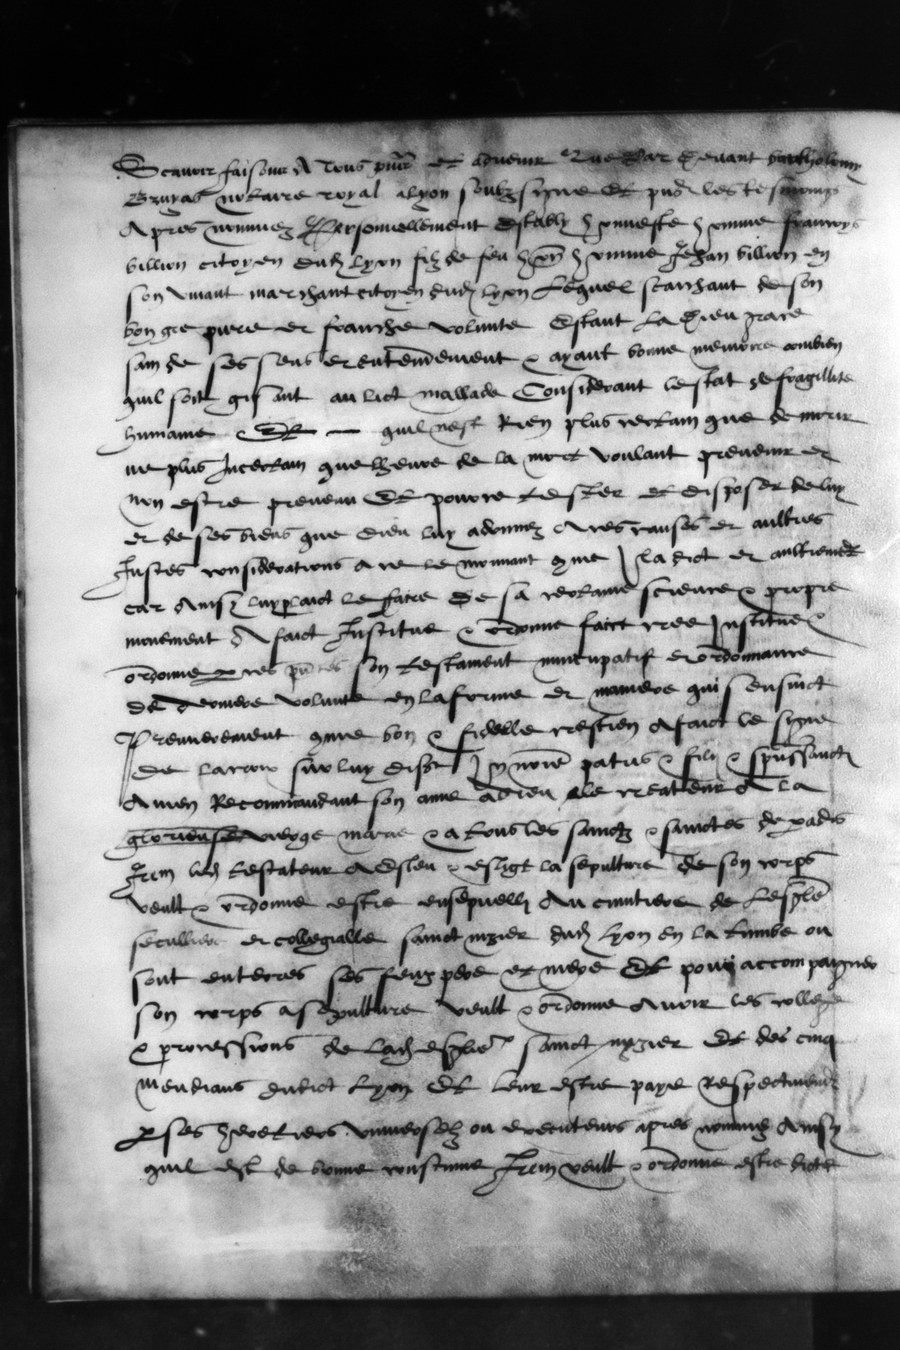 Scavoir faisons A Tous pñs et advenir Que Par devant bartholomy
Bruyas notaire royal a lyon soubzsigne Et pñs les tesmoings
Apres nommez Personnellement Estably honneste homme francoys
billion citoyen dudt lyon filz de feu honneste homme Jehan billion en
son vivant marchant citoyen dudt lyon Lequel scaichant de son
bon gre pure et franche volunte Estant La dieu grace
sain de ses sens et entendement & ayant bonne memoire combien
quil soit gisant au lict mallade Considerant lestat de fragillite
humaine Et quil nest Rien plus certain que de morir
ne plus Incertain que lheure de la mort voulant prevenir et
non estre prevenu Et pouvoir tester et disposer de luy
et de ses biens que dieu luy a donnez A ces causes et aultres
Justes considerations a ce le mouvant comme Il a dict et aultrement
car Ainsy luy plaict le faire De sa certaine science & propre
mouvement A faict Institue & ordonne faict cree Institue &
ordonne par ces pñtes son testament nuncupatif et ordonnance
de derniere volunte en la forme et maniere qui sensuict
Premierement comme bon & fidelle crestien A faict le signe
De la croix sur luy disant In noĩe patris & filij & spũssancti
Amen Recommandant son ame a dieu le createur A La
glorieuse vierge marie & a tous les sainctz & sainctes de paradis
Item ledt testateur A Esleu & eslist la sepulture de son corps
veult & ordonne estre ensepvelly Au cimitiere de Leglẽ
seculliere et collegialle sainct nizier dudt Lyon en la tumbe ou
sont enterres ses feuz pere et mere Et pour accompaigner
son corps a sepulture veult & ordonne Avoir les college
& processions de ladt eglise sainct nyzier Et des cinq
Mendians dudict Lyon Et leur estre paye Respectivement
par ses heretiers universelz ou executeurs apres nommez Ainsy
quil est de bonne coustume Item veult & ordonne estre dictes